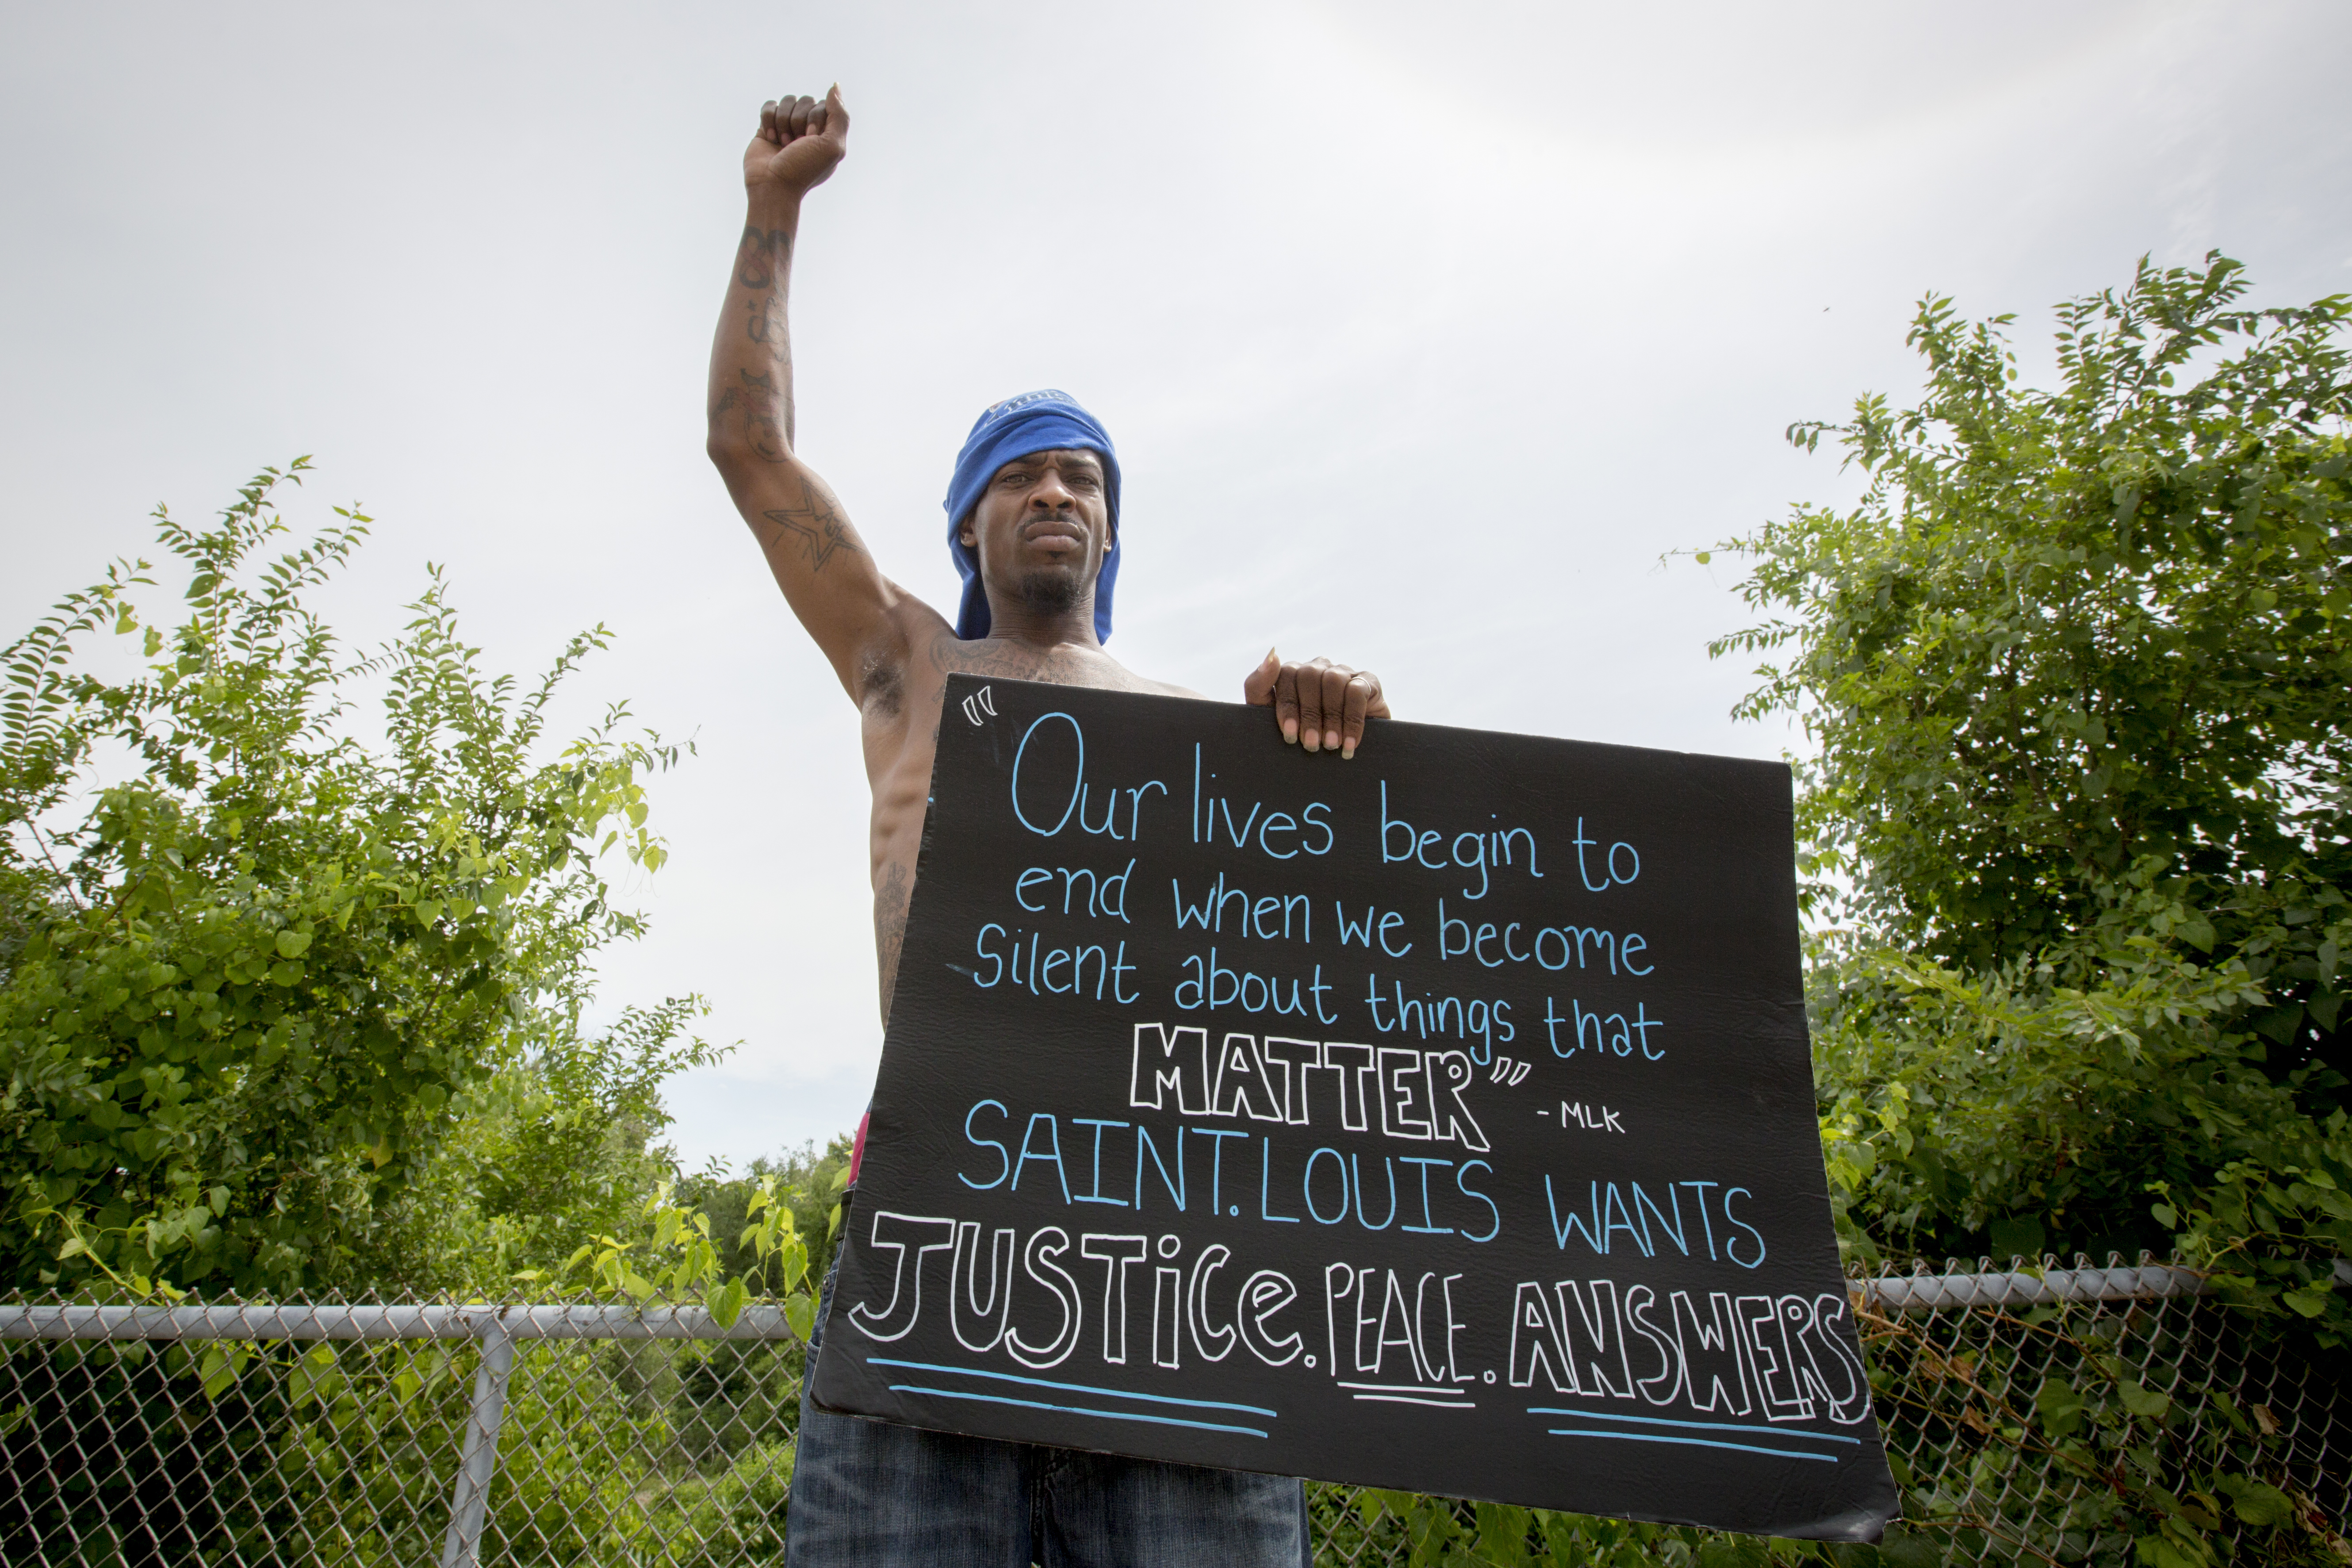 "Our lives begin to
end when we become
silent about things that
MATTER" - MLK
SAINT. LOUIS WANTS
JUSTiCe. PEACE. ANSWERS